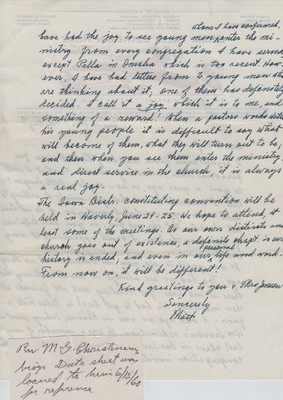 whom I have confirmed,
have had the joy to see young men enter the mi-
nistry from every congregation I have served
except Pella in Omaha which is too recent. How-
ever, I have had letters from to young men who
are thinking about it, one of them has definitely
decided. I call it a joy, which it is to me, and
something of a reward! When a pastors works with
his young people it is difficult to say what
will become of them, what they will turn out to be,
and then when you see them enter the ministry
and direct service in the church, it is always
a real joy.
The Iowa Distr. constituting convention will be
held in Waverly, June 24-25. We hope to attend, at
least some of the meetings. As our own districts and
church goes out of existence, a definite chept. in our
personal
history is ended, and even in our life and work.
From now on, it will be different!
Kind greetings to you & Mrs Jensen
Sincerely
Rev M. G. Christensen
biog Data sheet was
loaned to him 6/12/60
for reference